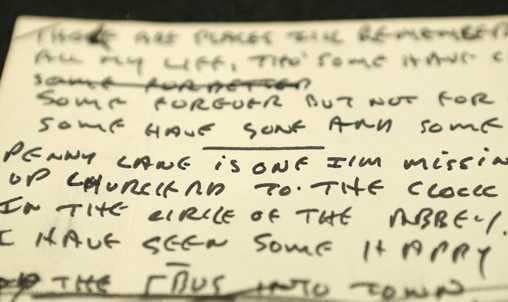 THERE ARE PLACES I'LL REMEMBER
ALL MY LIFE, THO' SOME HAVE C
SOME FOR BETTER
SOME FOREVER BUT NOT FOR
SOME HAVE GONE AND SOME
PENNY LANE is ONE I'M MISSIN
UP CHURCH AND TO THE CLOCK
IN THE CIRCLE OF THE ABBEY.
I HAVE SEEN SOME HAPPY
THE BUS INTO TOWN